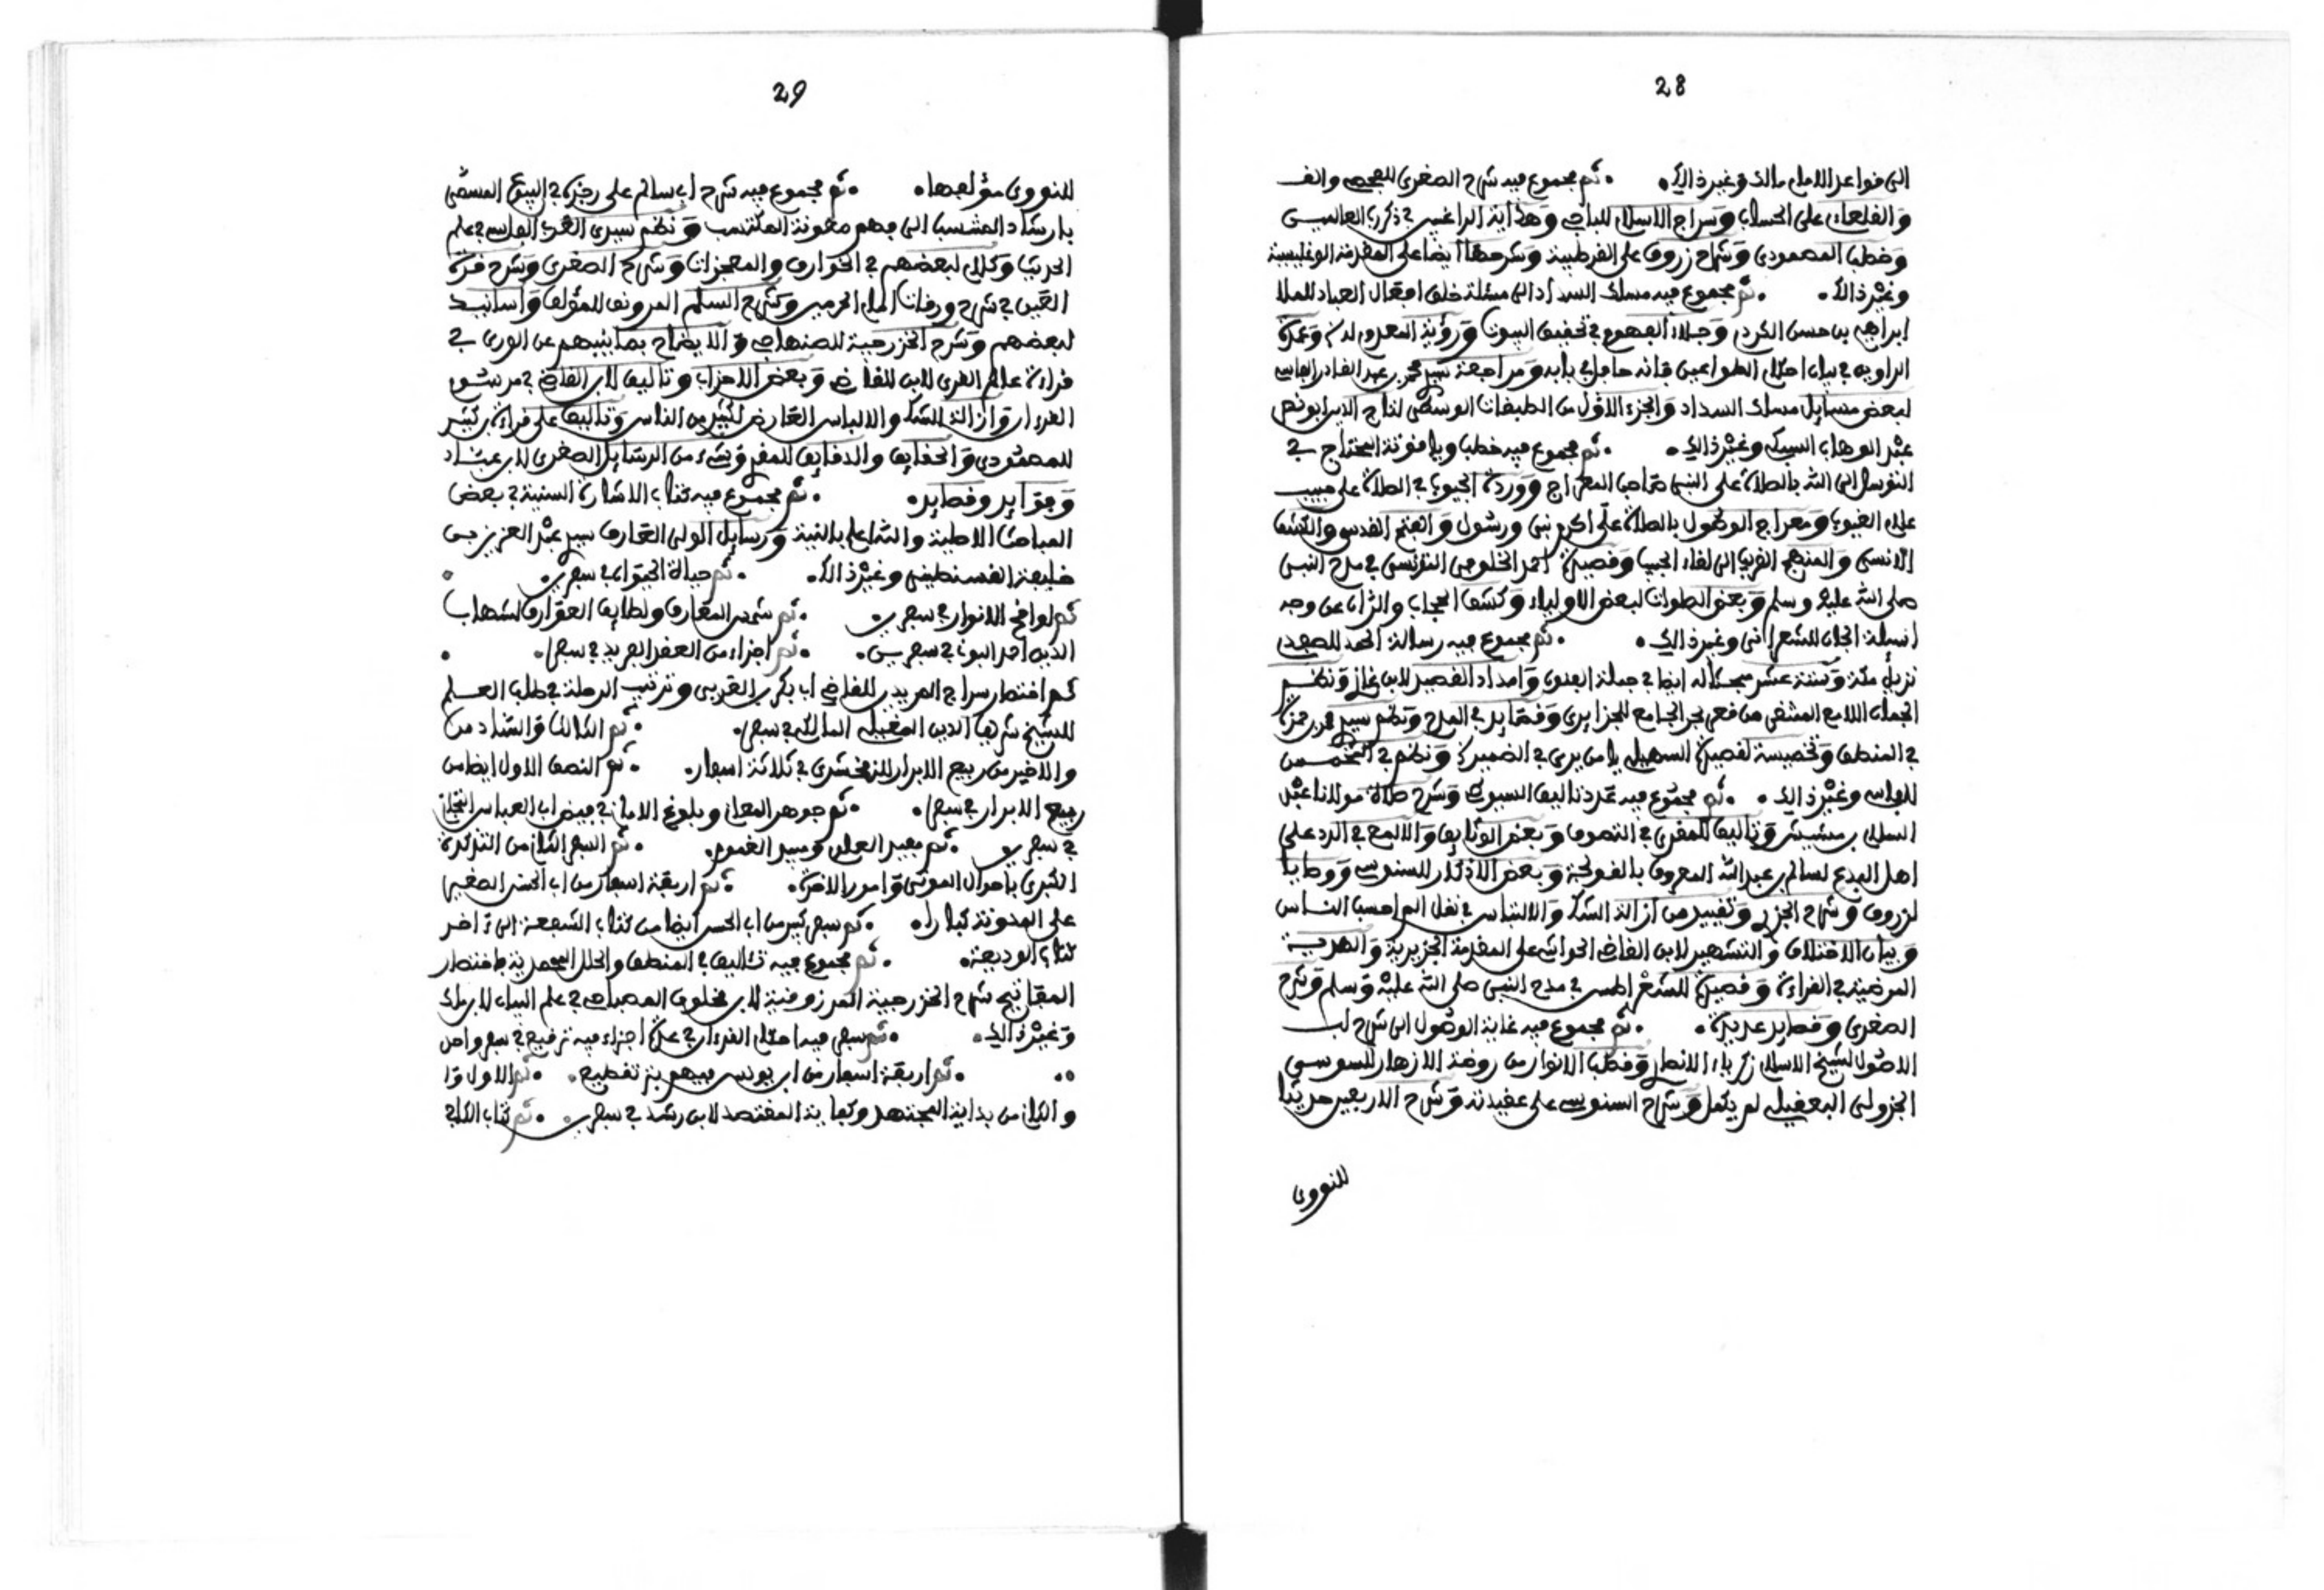 28
الى قواعد الامام مالك وغير ذالك . ثم مجموع فيه شرح الصغرى
والقلصادى على الحساب وسراج الاسلام للباجى وهداية الراغبين في ذكرى العالمين
وخطب المصمودي وشرح زروق على القرطبية وشرحها ايضا على المقدمة الوغليسية
وغير ذالك . ثم مجموع فيه مسلك السداد الى مسئلة خلق افعال العباد للملا
ابراهيم بن حسن الكردي وجلاء الفهوم في تحقيق الثبوت ورؤية المعدوم له وعمدة
الراوين في بيان احكام الطواعين فانه حافل في بابه ومراجعة سيدي محمد بن عبد القادر الفاسي
لبعض مسايل مسلك السداد والجزء الاول من الطبقات الوسطى لتاج الدين ابو نصر
عبد الوهاب السبكي وغير ذالك . ثم مجموع فيه خطب وياقوتة المحتاج في
التوسل الى الله بالصلاة على النبي صاحب المعراج ووردة الجيوب في الصلاة على حبيب
علام الغيوب ومعراج الوصول بالصلاة على اكرم نبي ورسول والفتح القدسي والكشف
الانسى والمنهج القريب الى لقاء الحبيب وقصيدة احمد الخلوفي التونسي في مدح النبي
صلى الله عليه وسلم وبعض الصلوات لبعض الاولياء وكشف الحجاب والران عن وجه
اسئلة الجان للشعراني وغير ذالك . ثم مجموع فيه رسالة احمد
نزيل مكة وستة عشر مبحثا له ايضا في جملة الفنون وامداد القصيد لابن غازي ونظم
الجمان اللامع المنتقى من قعر بحر الجامع للجزايري وقصايد في المدح ونظم سيدي محمد بن حمزة
في المنطق وتخميسة لقصيدة السهيلي يا من يرى في الضمير ونظم في
للفاسي وغير ذالك . ثم مجموع فيه عدد تاليف السيوطي وشرح صلاة مولانا عبد
السلام بن مشيش وتاليف للمقري في التصوف وبعض الوثايق والالمع في الرد على
اهل البدع لسالم بن عبد الله المعروف وبعض الاذكار للسنوسي ووصايا
لزروق وشرح الجزري وتقييد من ازالة الشك والالتباس في نقل الم احسب الناس
وبيان الاختلاف والتشهير لابن القاضي الحواشي على المقدمة الجزيرية
المرضية في القراءة وقصيدة للشقراطسي في مدح النبي صلى الله عليه وسلم وشرح
الصغرى وقصايد عديدة . ثم مجموع فيه غاية الوصول الى شرح لب
الاصول لشيخ الاسلام زكرياء الانصاري وقطب الانوار من روضة الازهار للسوسي
الجزولي البعقيلي لم يكمل وشرح السنوسي على عقيدته وشرح الاربعين حديثا
للنووى
29
للنووى مؤلفها . ثم مجموع فيه شرح ابى سالم على رجزه في البيوع المسمى
بارشاد المنتسب الى فهم معونة المكتسب ونظم سيدي العربي الفاسي في علم
الحديث وكلام لبعضهم في الخوارق والمعجزات وشرح الصغرى وشرح قرة
العين في شرح ورقات امام الحرمين وشرح السلم المرونق للمؤلف واسانيد
لبعضهم وشرح الخزرجية للصنهاجي والايضاح بما ينبهم عن الورى في
قراءة عالم ام القرى لابن القاضي وبعض الاحزاب وتاليف لابن القاضي في مرسوم
القرءان وازالة الشك والالباس العارض لكثير من الناس وتاليف على قراءة بن كثير
للمصمودي والحقايق والدقايق للمقري وشيء من الرسايل الصغرى لابن عباد
وفوايد وقصايد . ثم مجموع فيه كتاب الاشارة السنية في بعض
المباحث الاصلية والله اعلم بالنية ورسايل الولي العارف سيدي عبد العزيز بن
خليفة القسنطيني وغير ذالك . ثم حياة الحيوان في سفرين
ثم لوافح الانوار في سفرين . ثم شمس المعارف ولطايف العوارف لشهاب
الدين احمد البوني في سفرين . ثم اجزاء من العقد الفريد في سفر .
ثم اختصار سراج المريدين للقاضي ابى بكر بن العربي وترتيب الرحلة في طلب العلم
للشيخ شرف الدين المالكي في سفر . ثم الثالث والسادس
والاخير من ربيع الابرار للزمخشري في ثلاثة اسفار . ثم النصف الاول ايضا من
ربيع الابرار في سفر . ثم جوهر المعاني وبلوغ الاماني في فيض ابى العباس التجاني
في سفرين . ثم مفيد العلوم ومبيد الغموم . ثم السفر الثاني من التذكرة
الكبرى باحوال الموتى وامور الاخرة . ثم اربعة اسفار من ابى الحسن الصغير
على المدونة كبارا . ثم سفر كبير من ابى الحسن ايضا من كتاب الشفعة الى ءاخر
كتاب الوديعة . ثم مجموع فيه تاليف في المنطق والحلل السحرية
المفاتيح شرح الخزرجية المرزوقية لابن مخلوف المصباح في علم البيان لابن مالك
وغير ذالك . ثم سفر فيه احكام القرءان في عدة اجزاء فيه ترقيع في سفر واحد
. ثم اربعة اسفار من ابن يونس فيهم بتر تقطيع . ثم الاول
والثاني من بداية المجتهد وكفاية المقتصد لابن رشد في سفرين . ثم كتاب الكافي